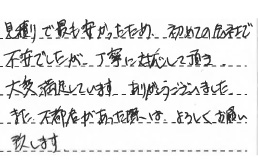 見積りで最も安かったため、初めての会社で
不安でしたが、丁寧に対応して頂き
大変満足しています。ありがとうございました
また、不都合があった際は、よろしくお願い
致します